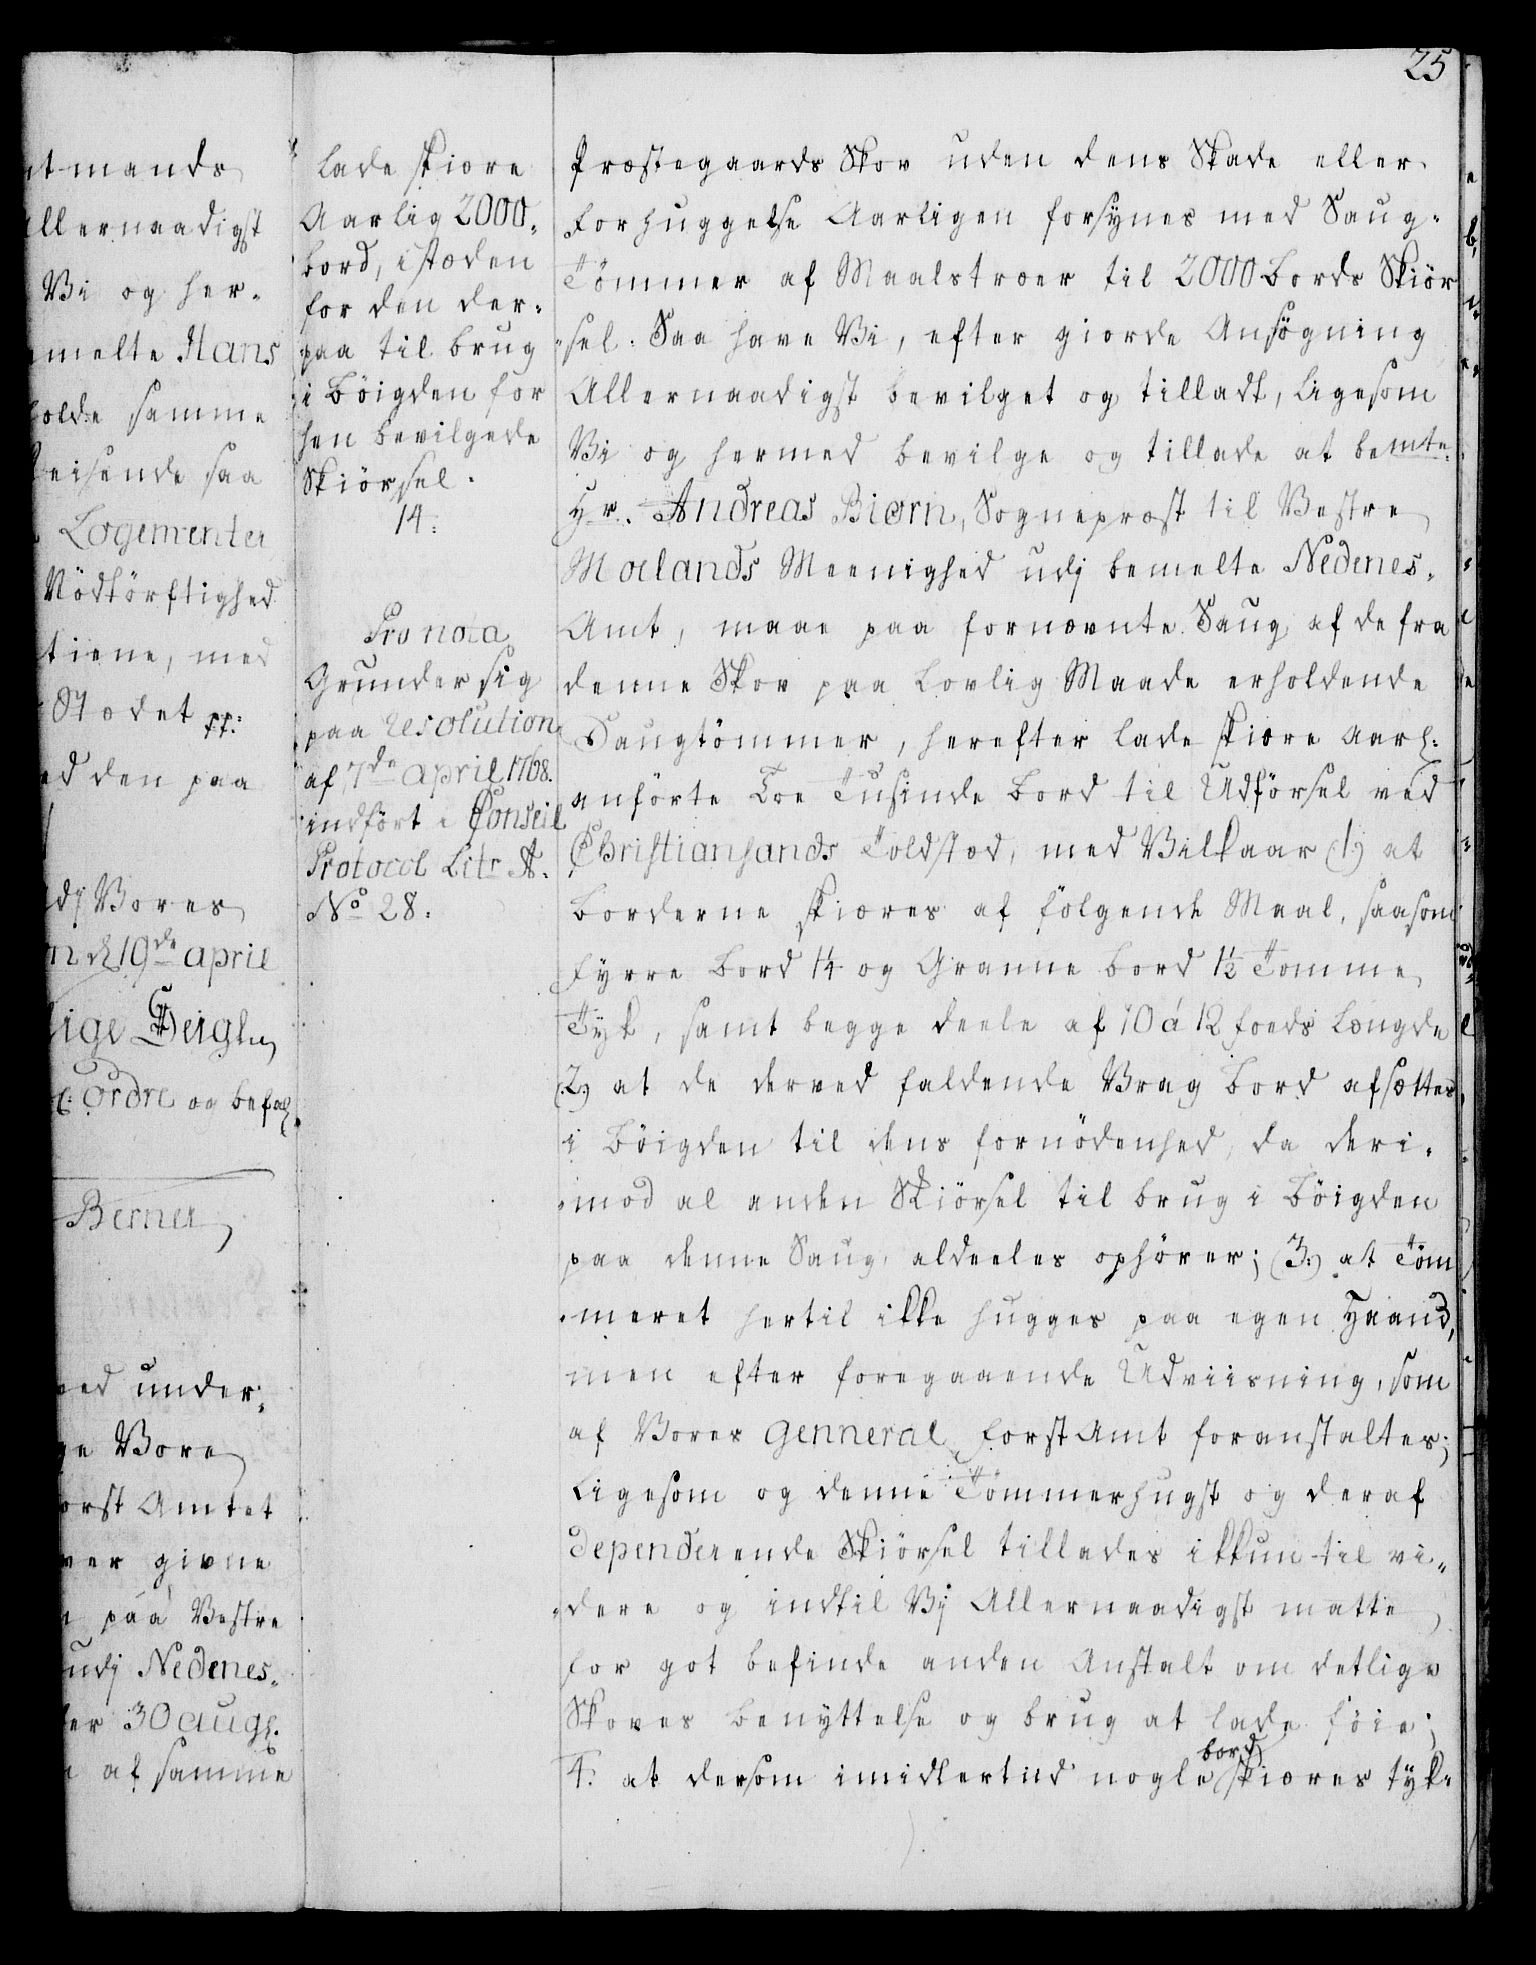 25
ntmands
Allernaadigst
Vi og her-
melte Hans
holde samme
Reisende saa
Logementer
Nödtörftighed
tiene, med
Stædet pp:
ed den paa
udj Vores
n d 19de april
ordre og befal.
Berner
ved under:
ge Vore
orst Amtet
ver givne
paa Vestre
udj Nedenes,,
er 30 aug.
af samme
lade skiære
Aarlig 2000,
bord, i stæden
for den der:
paa til brug
i Böigden for
hen bevilgede
Skiörsel.
14.
Pro nota
Grunder sig
paa resolution
af 7de april 1768.
indfört i Conseil
Protocol Litr A.
No 28.
Præstegaards Skov uden dens Skade eller
Forhuggelse Aarligen forsynes med Saug-
Tömmer af Maalstræer til 2000 Bords Skiör
„sel. Saa have Vi, efter giorde Ansögning
Allernaadigst bevilget og tilladt, ligesom
Vi og hermed bevilge og tillade at bemte
Hr. Andreas Biørn, Sognepræst til Vestre
Moelands Meenighed udj bemelte Nedenes,
Amt, maae paa fornævnte Saug af de fra
denne Skov paa Lovlig Maade erholdende
Saugtömmer, herefter lade skiære aarl:
anförte Toe Tusinde Bord til Udförsel ved
Christiansands Toldsted, med Vilkaar (1.) at
Borderne skiæres af fölgende Maal, saasom
Fyrre Bord 1¼ og Granne bord 1½ Tomme
Tyk, samt begge deele af 10 á 12 foeds Længde
(2.) at de derved faldende Vrag Bord afsættes
i Böigden til dens fornödenhed, da deri„
„mod al anden Skiörsel til brug i Böigden
paa denne Saug aldeeles ophörer; (3.) at Töm
„meret hertil ikke hugges paa egen Haand,
men efter foregaaende Udviisning, som
af Vores Genneral ForstAmt foranstaltes;
Ligesom og denne Tömmerhugst og deraf
dependerende Skiörsel tillades ikkun til vi„
„dere og indtil Vi Allernaadigst matte
for got befinde anden Anstalt om detlige
Skoves benyttelse og brug at lade föie;
bord
4. at dersom imidlertiid nogle skiæres tyk„